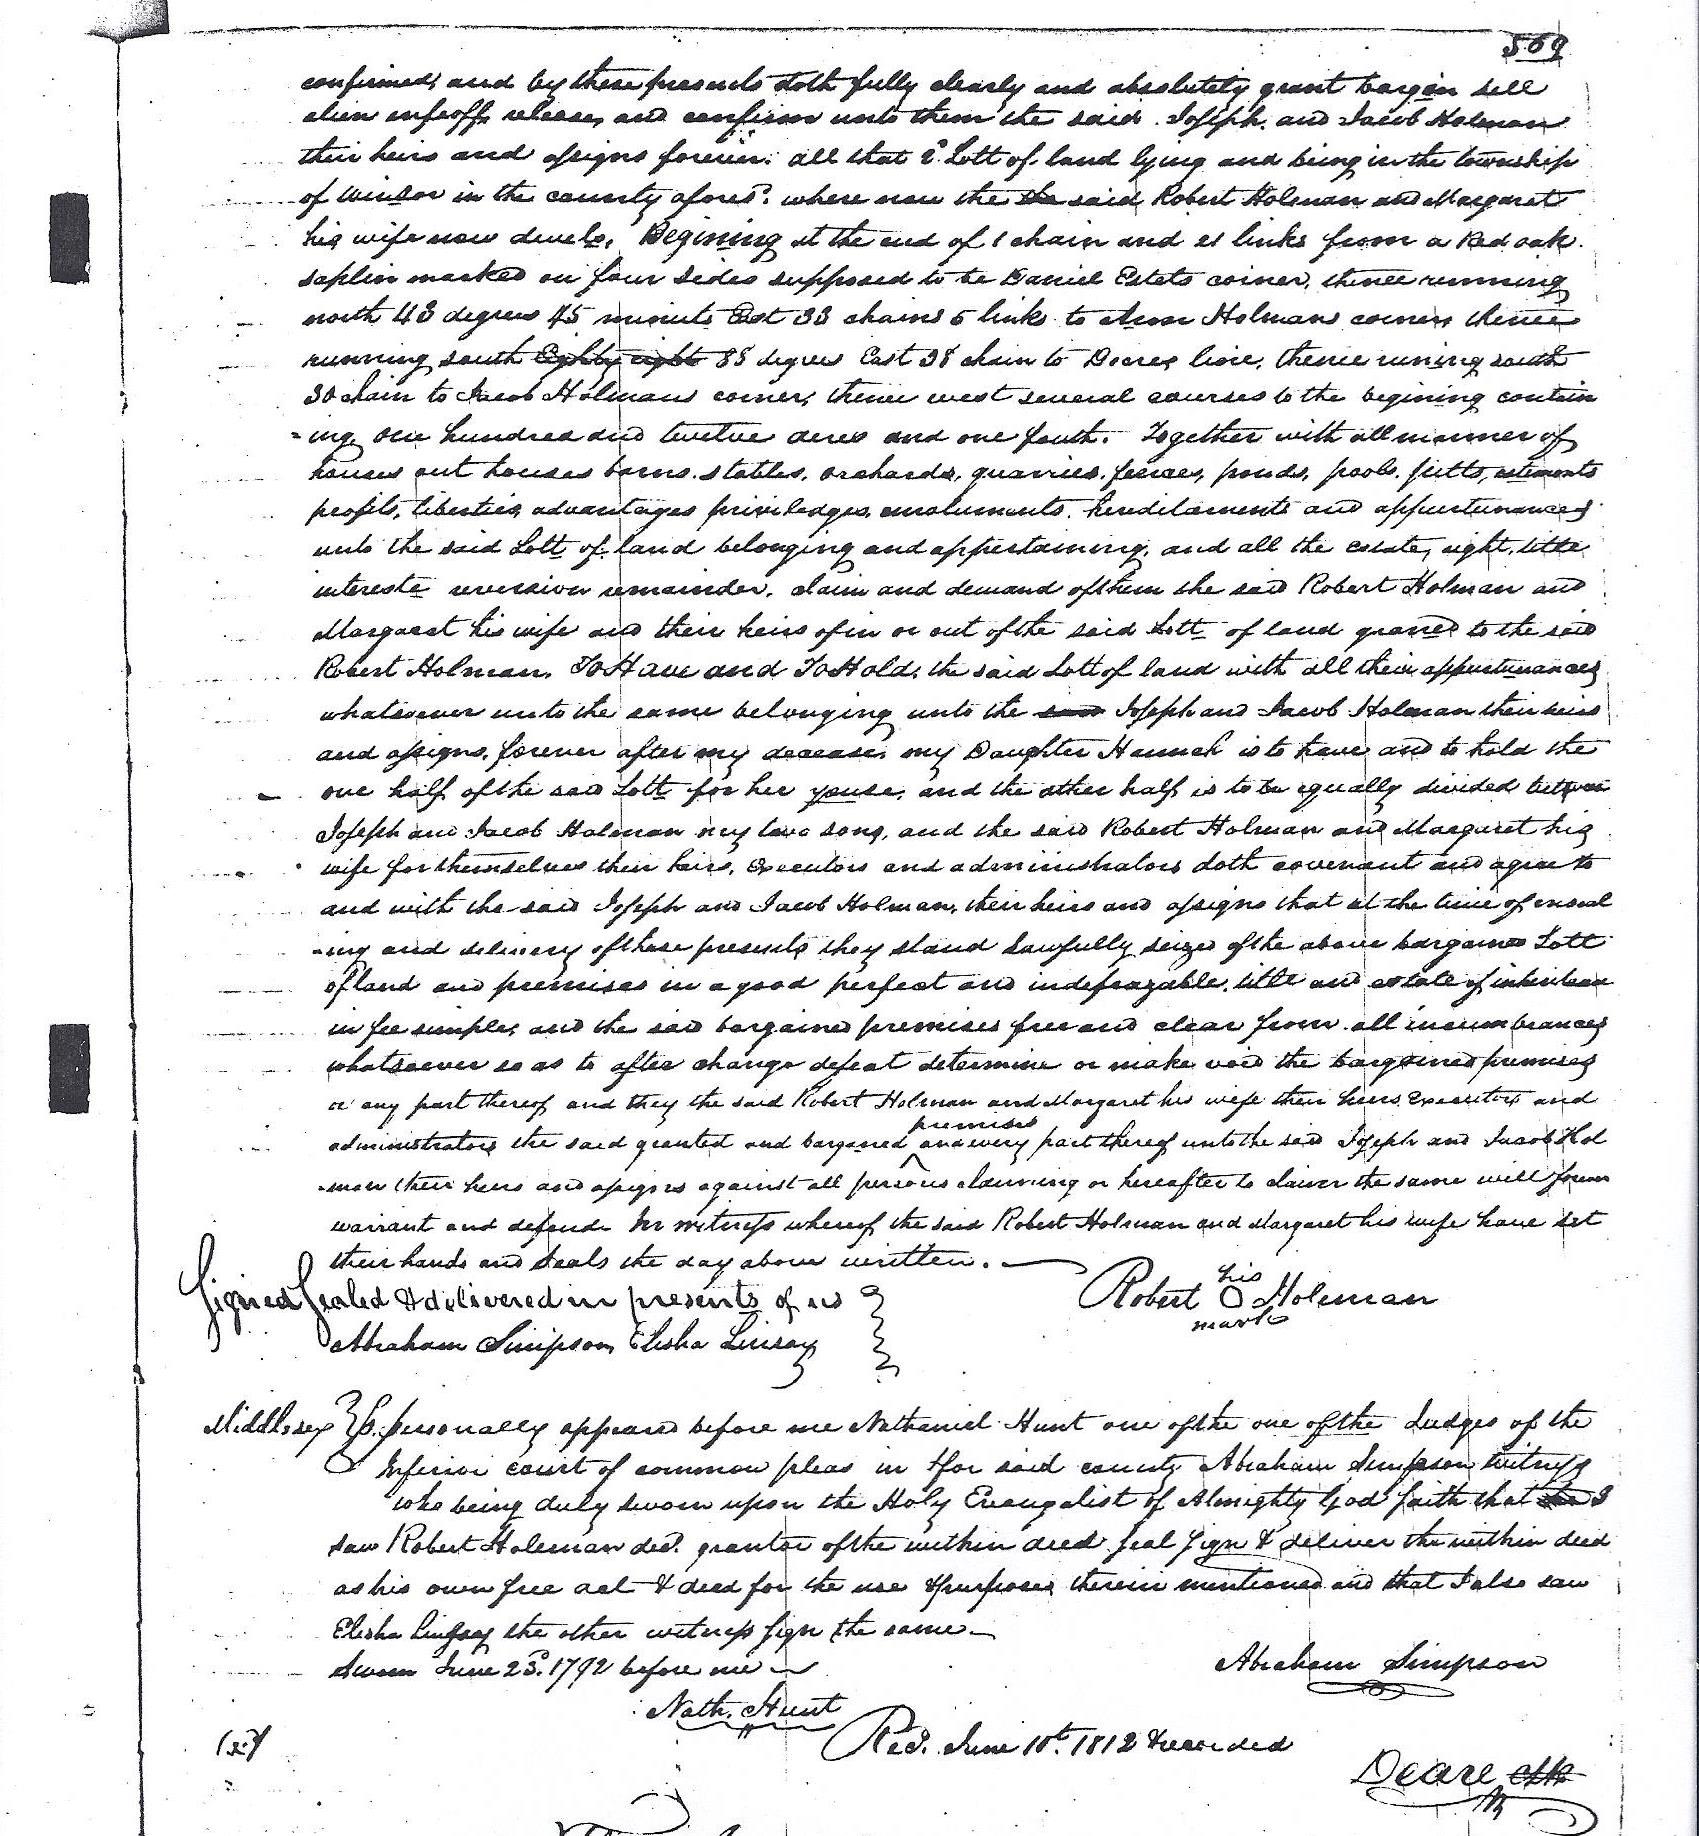 569
confirmed, and by these presents doth fully clearly and absolutely grant bargain sell
alien enfeoff, release, and confirm unto them the said Joseph and Jacob Holman
their heirs and assigns forever. all that Lott of land lying and being in the township
of Windsor in the county afores.d where now the the said Robert Holman and Margaret
his wife now dwels, Begining at the end of 1 chain and 21 links from a Red oak
saplin marked on four sides supposed to be Daniel Estels corner, thence running
north 43 degrees 45 minuts East 33 chains 5 links to Holmans corner, thence
running south Eighty eight 88 degrees East 38 chain to line, thence runing south
30 chain to Jacob Holmans corner, thence west several courses to the begining contain
=ing, one hundred and twelve acres and one fouth. Together with all manner of
houses out houses barns, stables, orchards, quarries, fences, ponds, pools, pitts,
profits, liberties, advantages priviledges, emoluments, hereditaments and appurtenances
unto the said Lott of land belonging and appertaining, and all the estate, right, title
intereste reversion remainder, claim and demand of them the said Robert Holman and
Margaret his wife and their heirs of in or out of the said Lott of land graned to the said
Robert Holman. To Have and To Hold, the said Lott of land with all their appurtenances
whatsoever unto the same belonging unto the said Joseph and Jacob Holman their heirs
and assigns, forever after my decease, my Daughter Hannah is to have and to hold the
one half of the said Lott for her youse, and the other half is to be equally divided between
Joseph and Jacob Holman my two sons, and the said Robert Holman and Margaret his
wife for themselves their heirs, Executors and administrators doth covenant and agree to
and with the said Joseph and Jacob Holman, their heirs and assigns that at the time of enseal
-ing and delivery of these presents they stand lawfully seized of the above bargained Lott
of land and premises in a good perfect and indefeazable, title and estate of
in fee simple, and the said bargained premises free and clear from all incumbrances
whatsoever so as to alter change defeat determine or make void the bargained premises
or any part thereof and they the said Robert Holman and Margaret his wife their heirs Executors and
premises
administrators the said granted and bargained and every part thereof unto the said Joseph and Jacob Hol
-man their heirs and assigns against all persons claiming or hereafter to claim the same will forever
warrant and defend. In witness whereof the said Robert Holman and Margaret his wife have set
their hands and seals the day above written.
Signed Sealed & delivered in presents of us
his
Robert O Holeman
mark
Abraham Simpson, Elisha Linsay
Middlesex Ss. personally appeared before me Nathaniel Hunt one of the one of the Judges of the
Inferior court of common pleas in & for said county Abraham Simpson witness
who being duly sworn upon the Holy Evangalist of Almighty God saith that he I
saw Robert Holeman dec.d grantor of the within deed seal sign & deliver the within deed
as his own free act & deed for the use & purposes therein mentioned and that I also saw
Elisha Lindsey the other witness sign the same
Sworn June 23.d 1792 before me
Abraham Simpson
Nath. Hunt
Rec.d June 10.t 1812 & recorded
Deare Clk